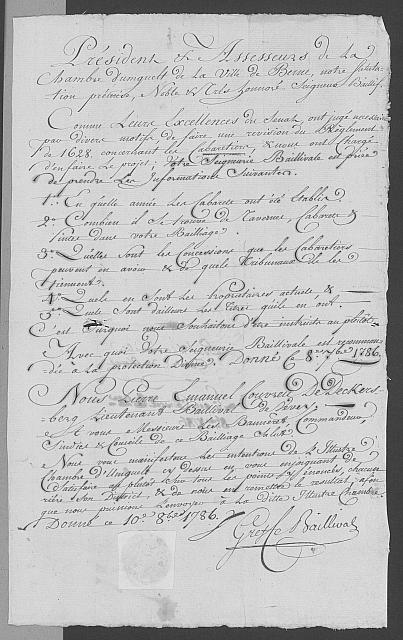 Président & Assesseurs de La
Chambre d'umguelt de La Ville de Berne, notre salutation
prémise, Noble & très honnoré Seigneur Baillif.
Comme Leurs Excellences du Senat, ont jugé necessaire
par divers motifs de faire une revision du Réglement
de 1628, concernant les Cabaretiers, & nous ont chargé
d'en faire le projet; Vôtre Seigneurie Baillivale est priée
de prendre les Informations Suivantes.
1º. En quelle année Les Cabarets ont été Etablis.
2º. Combien il se trouve de Taverne, Cabarets &
Pintes dans votre Bailliage.
3º. Quelles sont les Concessions que les Cabaretiers
peuvent en avoir & de quels Tribunaux ils les
tiennent.
4º. Quels en sont Les propriétaires actuels, &
5º. quels sont d'ailleurs les Titres qu'ils en ont.
C'est Surquoi nous Souhaitons d'être instruits au plutot.
Avec quoi Vôtre Seigneurie Baillivale est recommandée
à la protection Divine. Donné ce 8e. 7bre 1786.
Nous Pierre Emanuel Couvreu De Deckersberg
Lieutenant Baillival de Vevey
A vous Messieurs Les Banneret, Commandeur
& Conseils de ce Bailliage Salut.
Nous vous manifestons les intentions de L'Illustre
Chambre d'Umguelt cy dessus en vous enjoignant de
satisfaire au plutôt sur tous les points y énoncés, chacun
rière Son District, & de nous en remettre le resultat, afin
que nous puissions l'envoyer à La ditte Illustre Chambre.
Donné ce 10e 8bre 1786.
Greffe Baillival